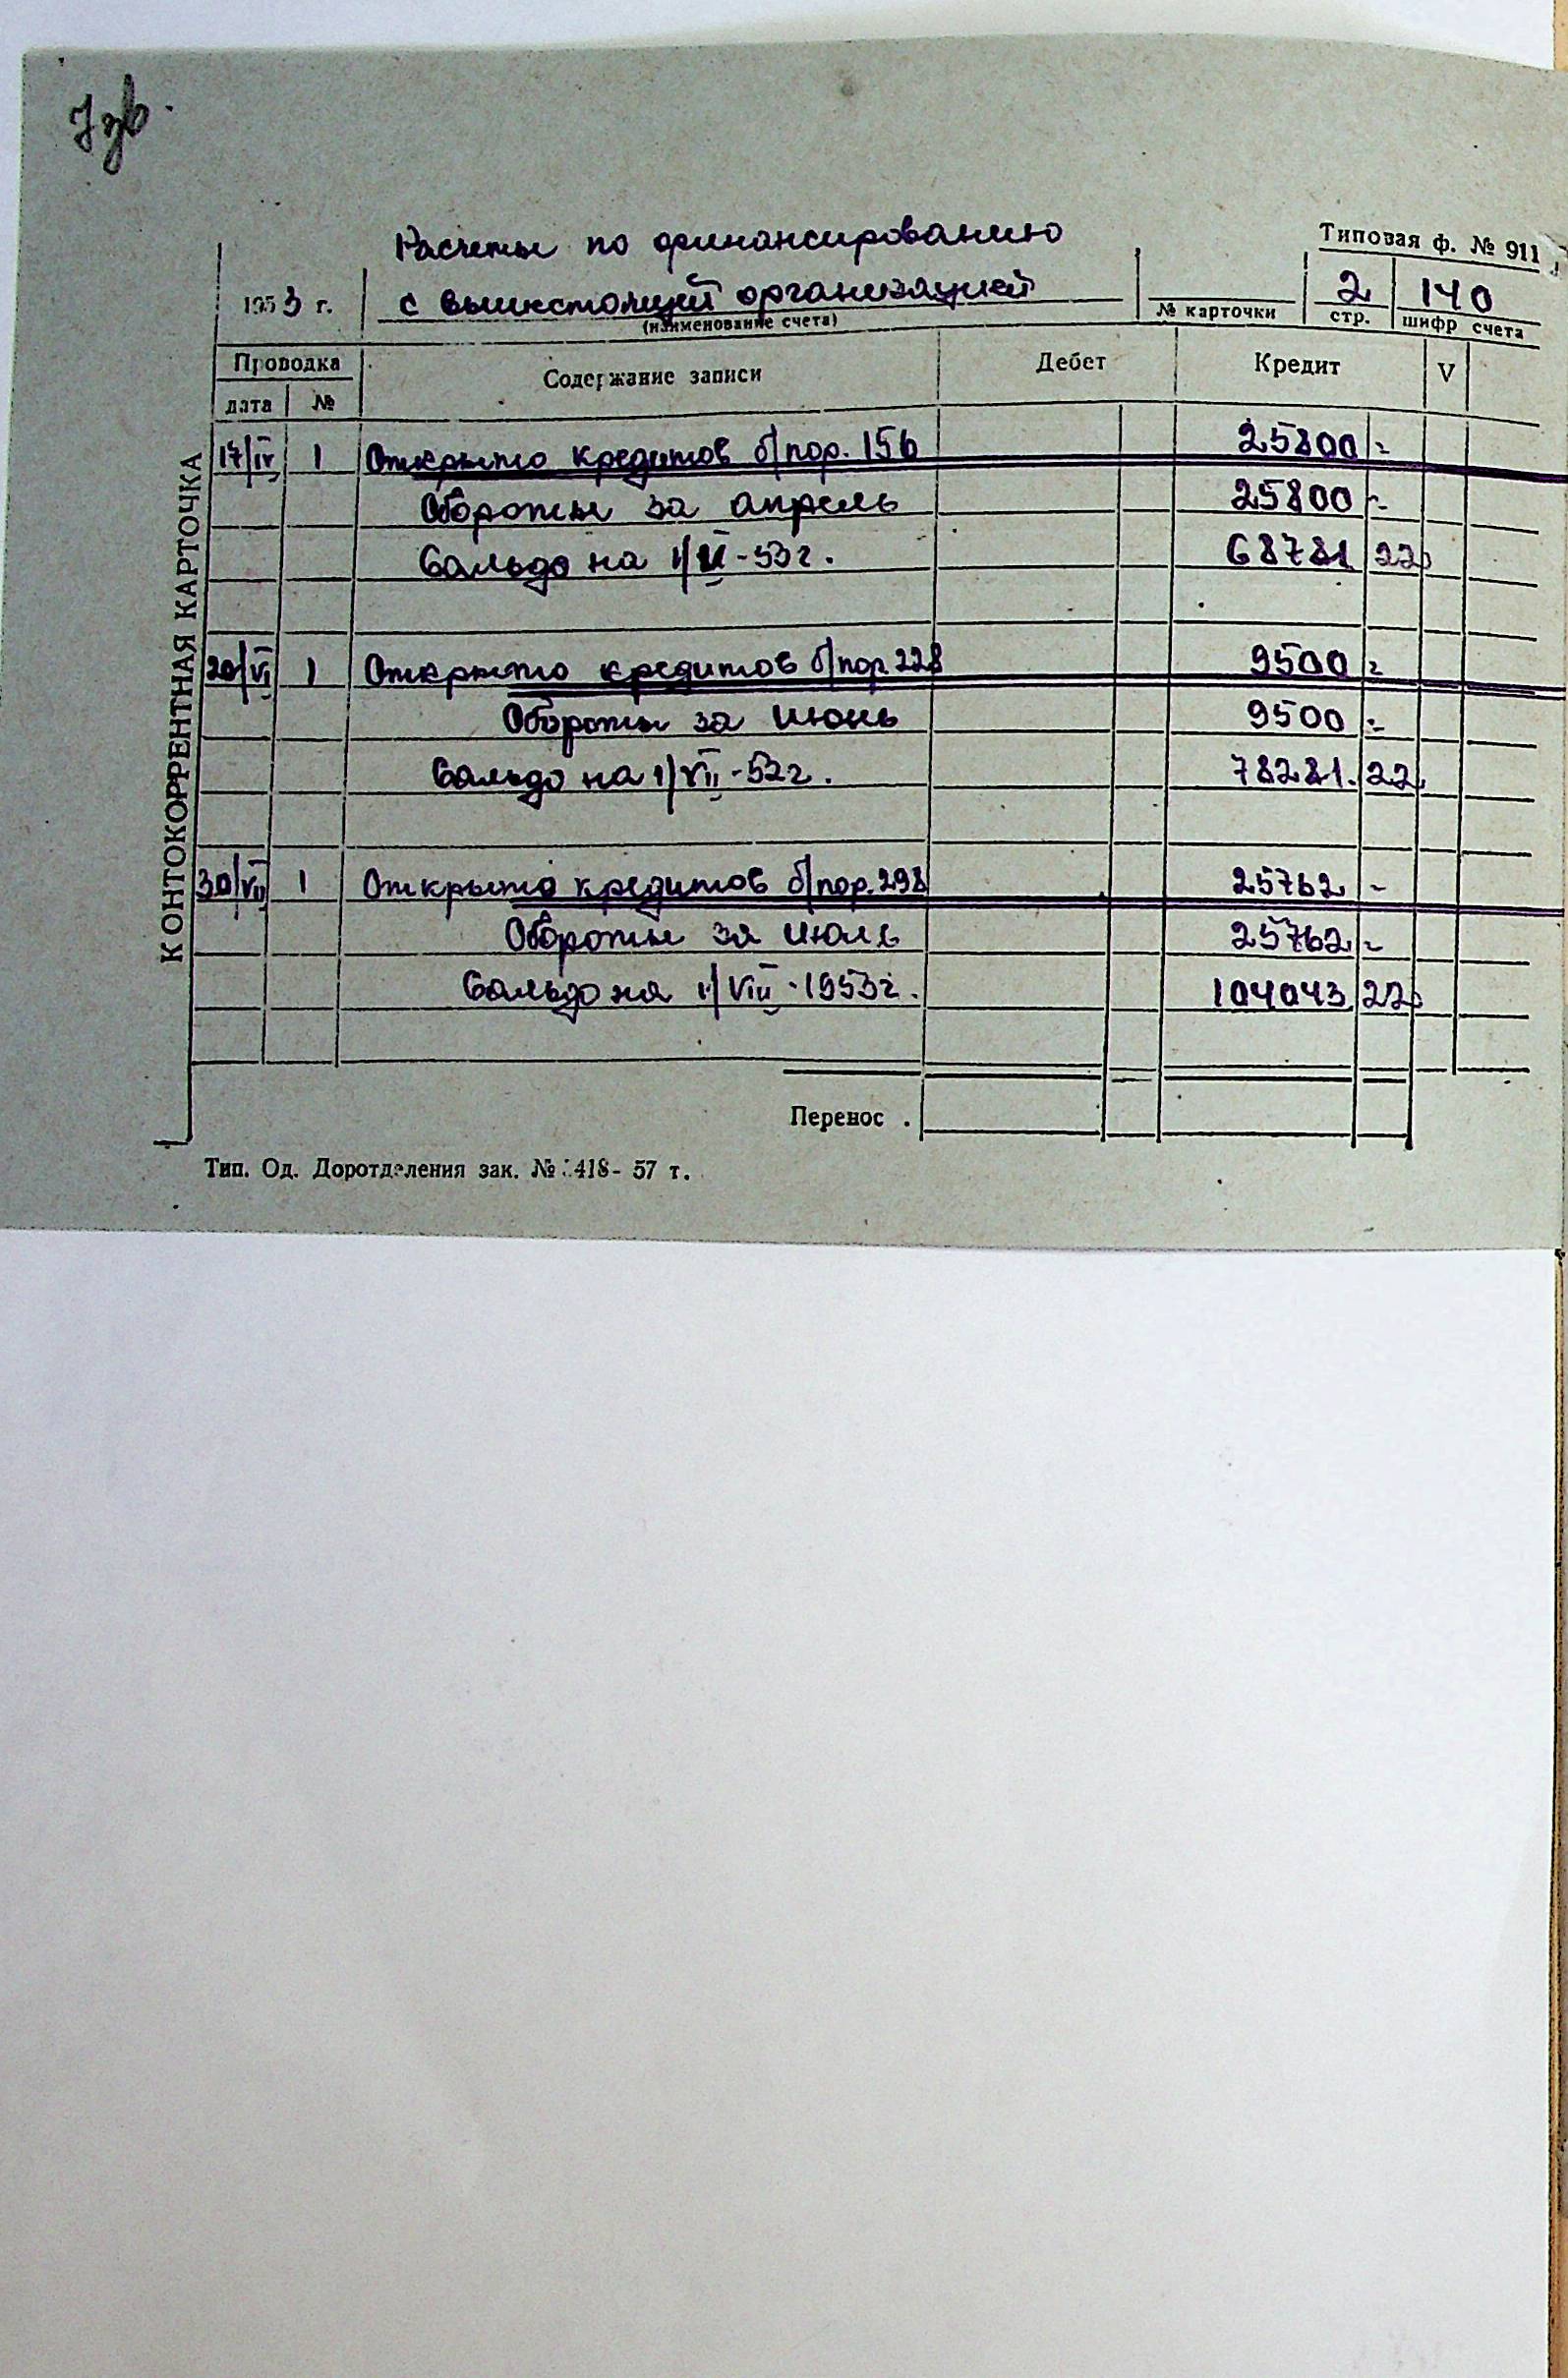 Расчеты по финансированию
Типовая ф. № 911
1953 г. с вышестоящей организацией 2 140
(наименование счета) № карточки стр. шифр счета
КОНТОКОРРЕНТНАЯ КАРТОЧКА
Проводка Содержание записи Дебет Кредит V
дата №
17/IV 1 Открыто кредитов б/пор. 156 25800 -
Обороты за апрель 25800 -
Сальдо на 1/ -53 г. 68781 22
20/VI 1 Открыто кредитов б/пор 228 9500 -
Обороты за июнь 9500 -
Сальдо на 1/VII -52 г. 78281. 22
30/VII 1 Открыто кредитов б/пор. 298 25762 -
Обороты за июль 25762 -
Сальдо на 1/VIII - 1953 г. 104043 22
Перенос .
Тип. Од. Доротделения зак. № 418- 57 т.